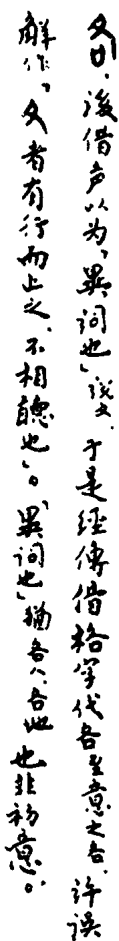 夂口，后借声以为「異词也」说文，于是經傳借格字代各至意之各，许误
解作，夂者有行而止之，不相聽也」。「異词也」猶各人各地也非初意。